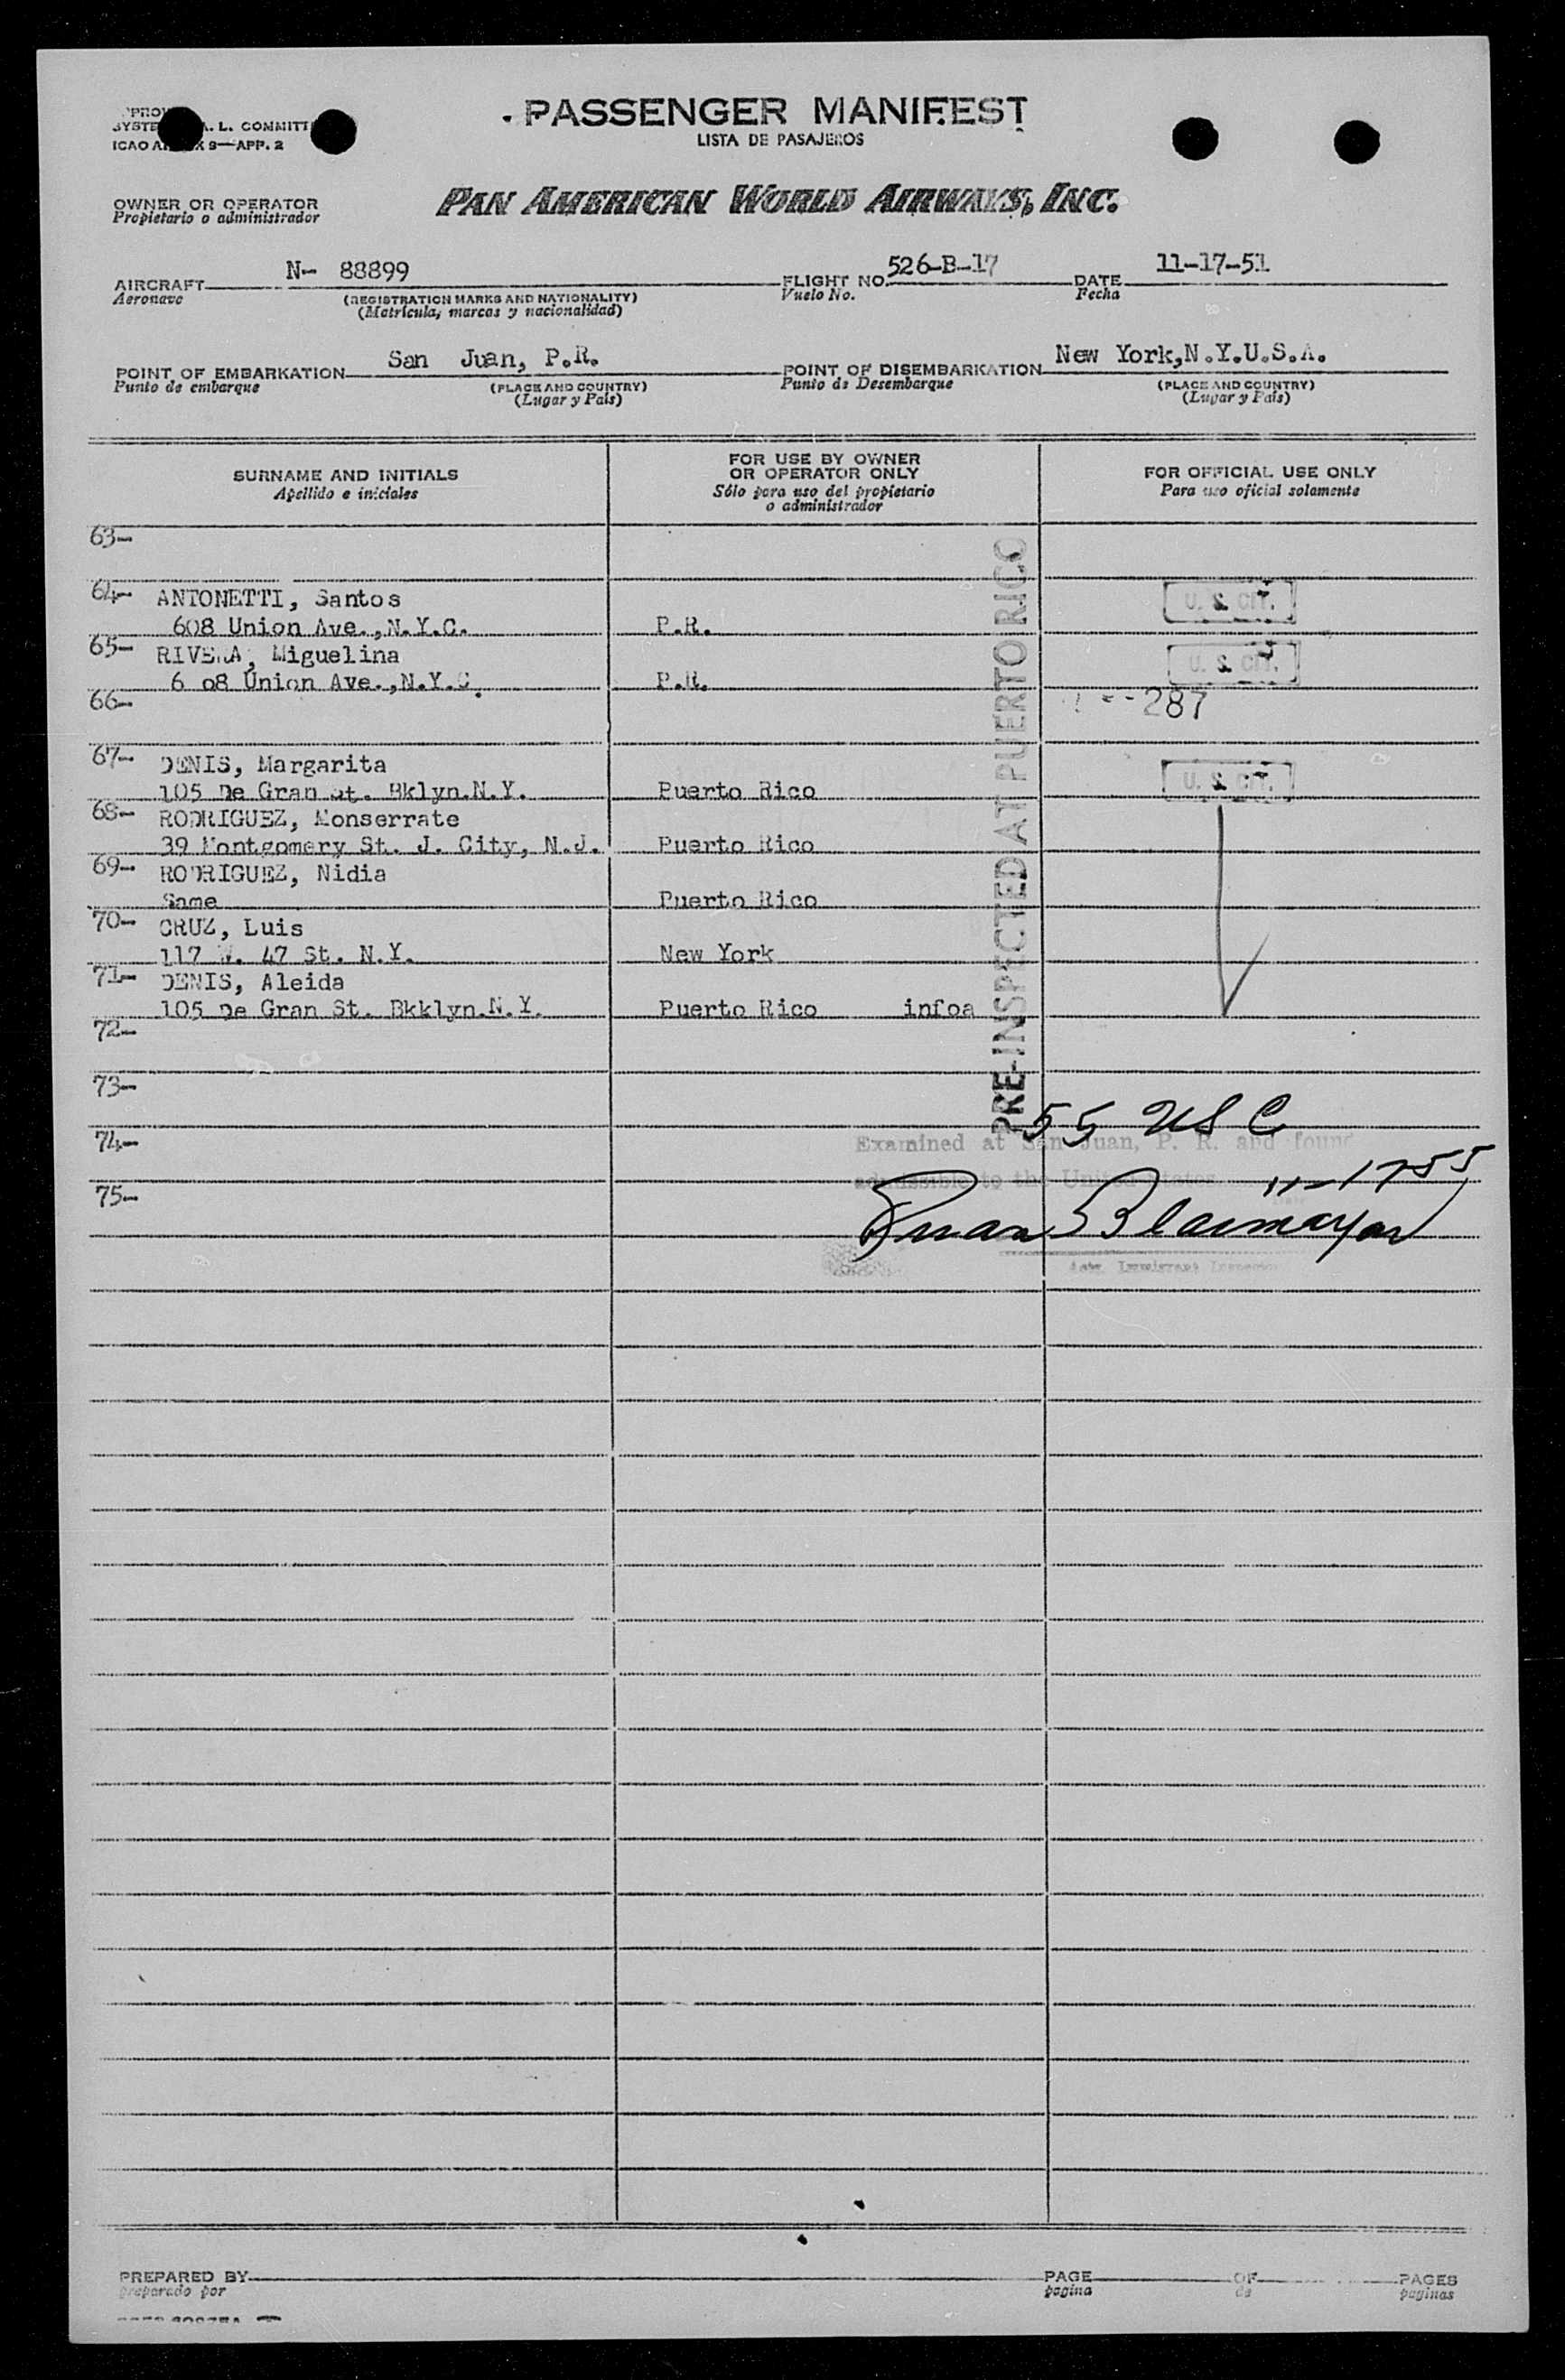 PASSENGER MANIFEST
LISTA DE PASAJEROS
L. COMMITT
ICAO 9—APP. 2
OWNER OR OPERATOR
Propietario o administrador
PAN AMERICAN WORLD AIRWAYS, INC.
AIRCRAFT N- 88899 FLIGHT NO. 526-B-17 DATE 11-17-51
Aeronave (REGISTRATION MARKS AND NATIONALITY) Vuelo No. Fecha
(Matrícula, marcas y nacionalidad)
POINT OF EMBARKATION San Juan, P.R. POINT OF DISEMBARKATION New York,N.Y.U.S.A.
Punto de embarque (PLACE AND COUNTRY) Punto de Desembarque (PLACE AND COUNTRY)
(Lugar y País) (Lugar y País)
SURNAME AND INITIALS
Apellido e iniciales
FOR USE BY OWNER
OR OPERATOR ONLY
Sólo para uso del propietario
o administrador
FOR OFFICIAL USE ONLY
Para uso oficial solamente
63-
64- ANTONETTI, Santos U. S. CIT.
608 Union Ave.,N.Y.C. P.R.
65- RIVERA, Miguelina U. S. CIT.
6 08 Union Ave.,N.Y.C. P.R.
66- 287
67- DENIS, Margarita U. S. CIT.
105 De Gran St. Bklyn.N.Y. Puerto Rico
68- RODRIGUEZ, Monserrate
39 Montgomery St. J. City, N.J. Puerto Rico
69- RODRIGUEZ, Nidia
Same Puerto Rico
70- CRUZ, Luis
117 W. 47 St. N.Y. New York
71- DENIS, Aleida
105 De Gran St. Bkklyn.N.Y. Puerto Rico infoa
72-
73-
74-
75-
PRE-INSPECTED AT PUERTO RICO
55 USC
Examined at San Juan, P. R. and found
admissible to the United States 11-17-55
Date
Immigrant Inspector
PREPARED BY PAGE OF PAGES
preparado por pagina de paginas